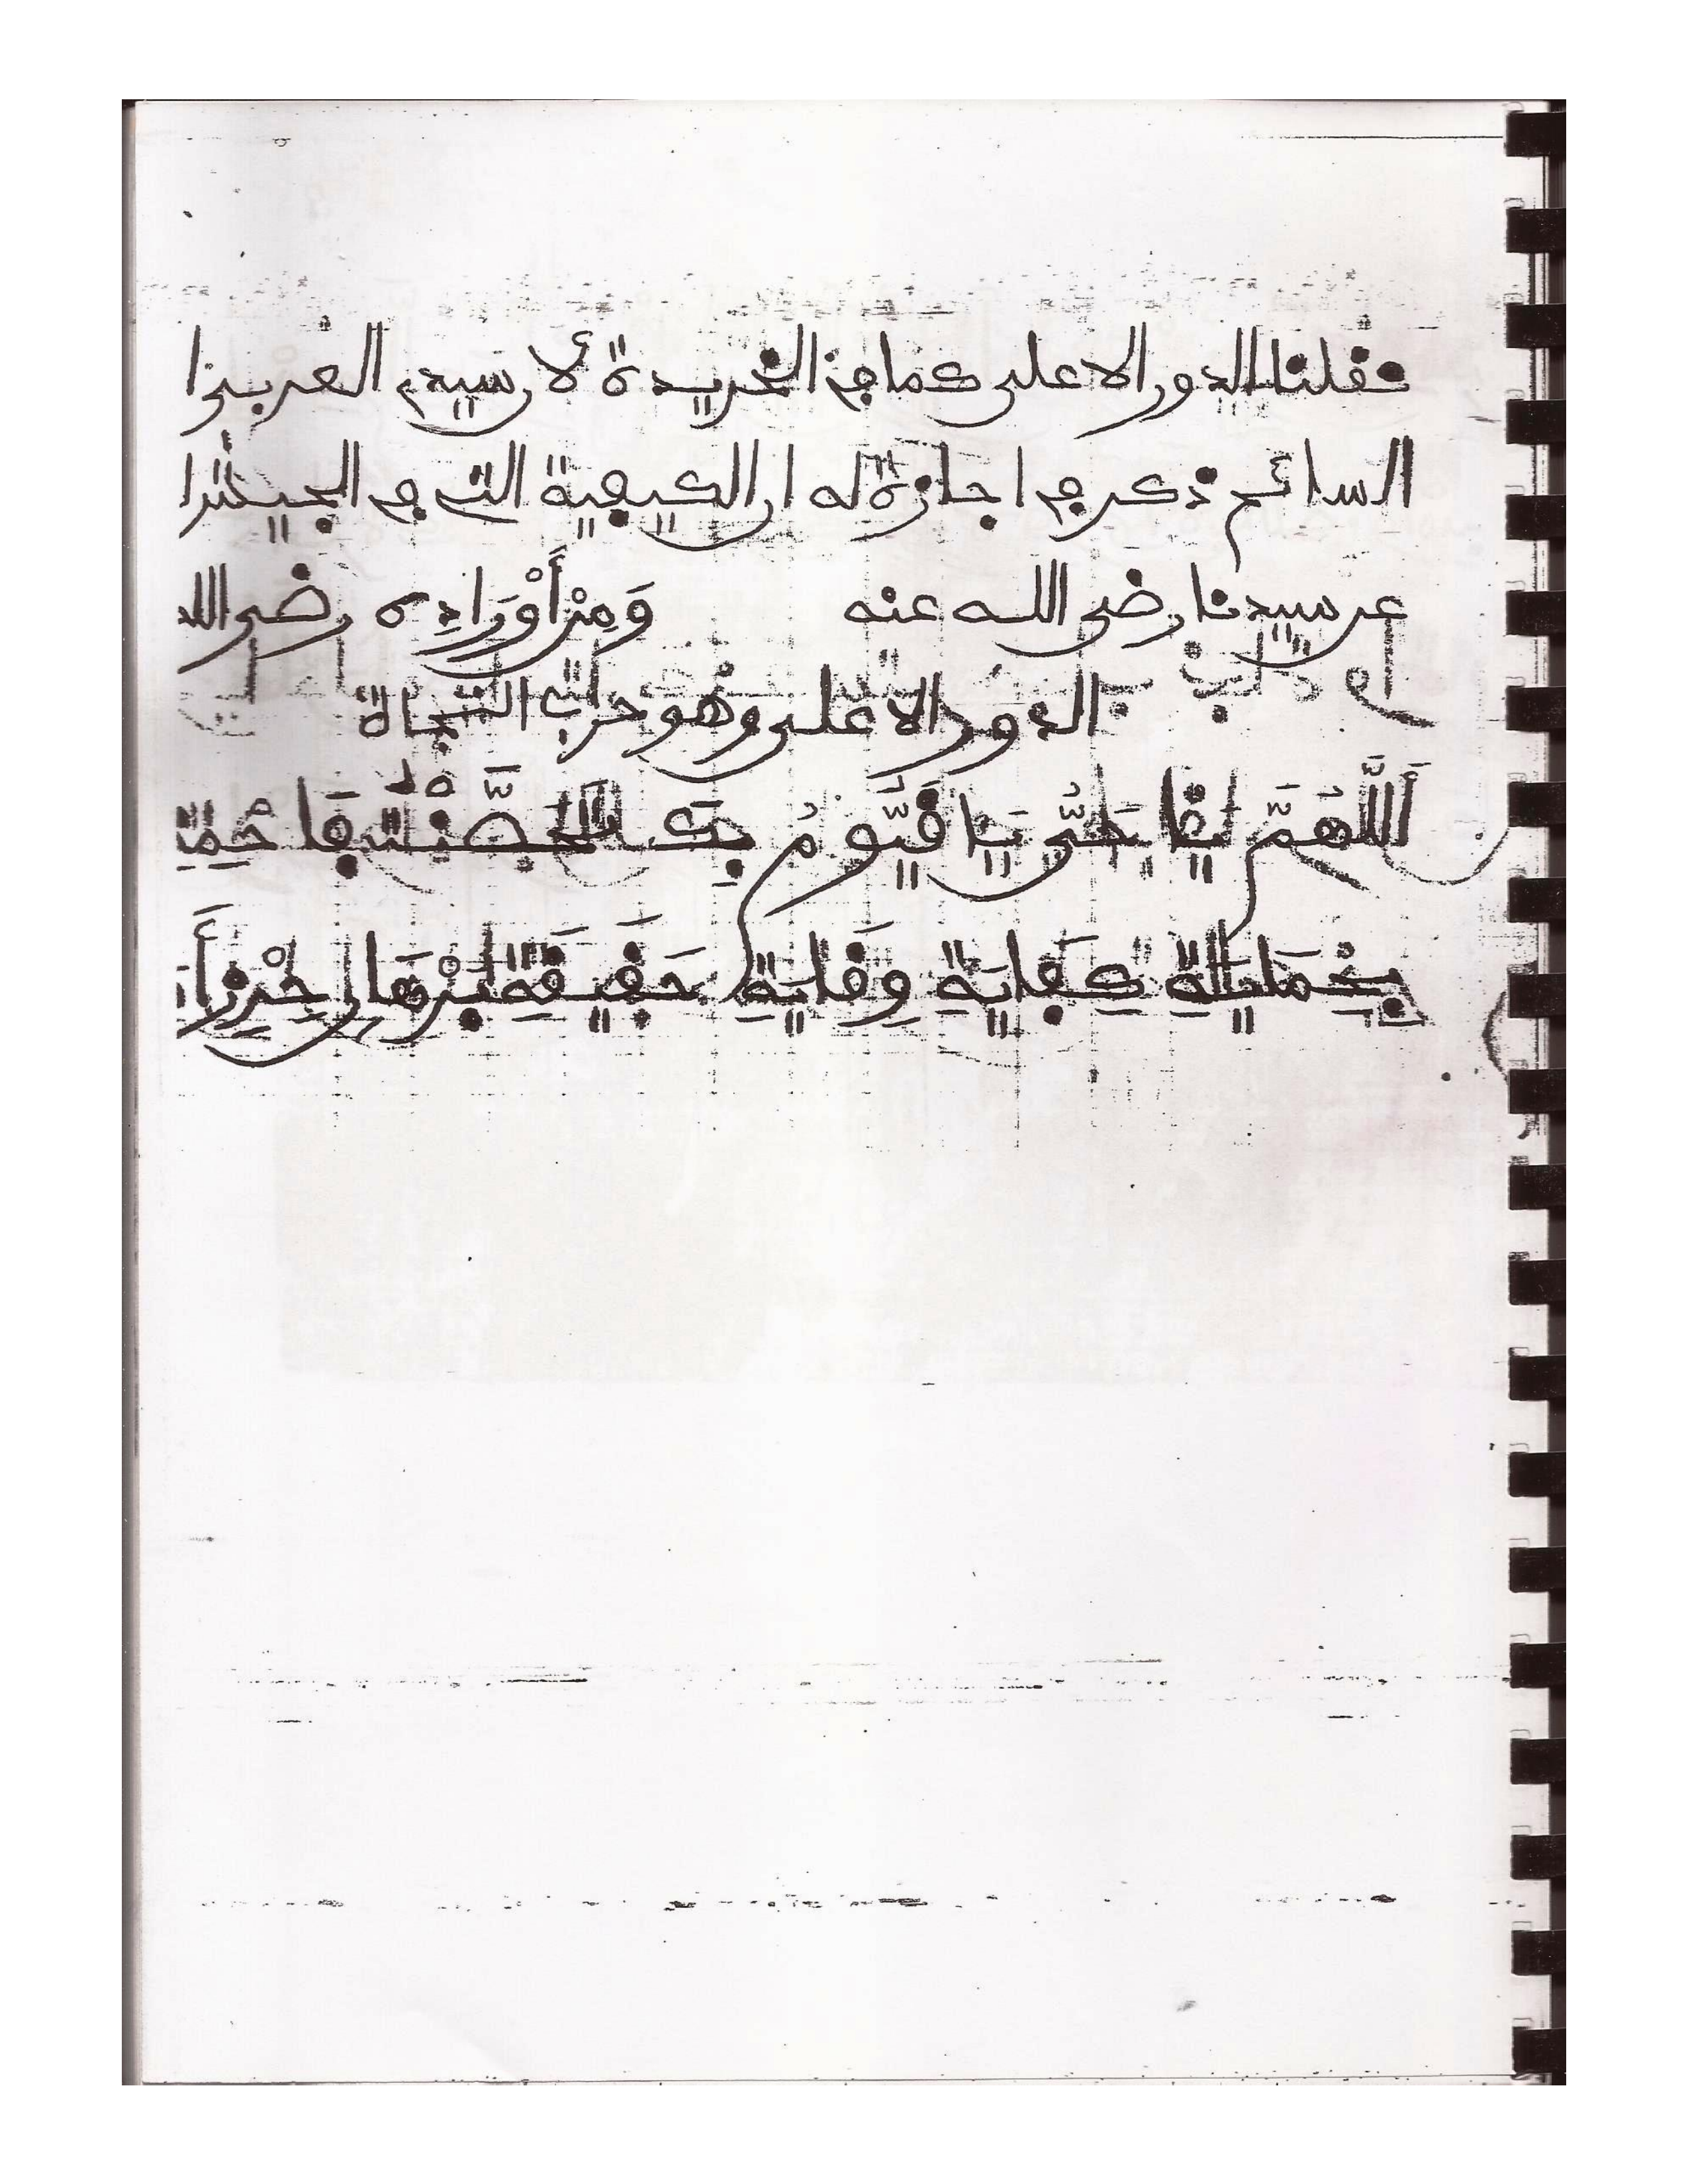 نقلنا الدور الاعلى كما في الخريدة لأن سيدي العربي بن
السائح ذكر في اجازة له ان الكيفية التي في الجيش
عن سيدنا رضي الله عنه وَمِنْ أَوْرَادِهِ رضي الله
الدور الاعلى وهو حزب النجاة
أَللَّهُمَّ يَا حَيُّ يَا قَيُّومُ بِكَ تَحَصَّنْتُ فَاحْمِنِي
بِحِمَايَةِ كِفَايَةِ وِقَايَةِ حَقِيقَةِ بُرْهَانِ حِرْزِ أَ